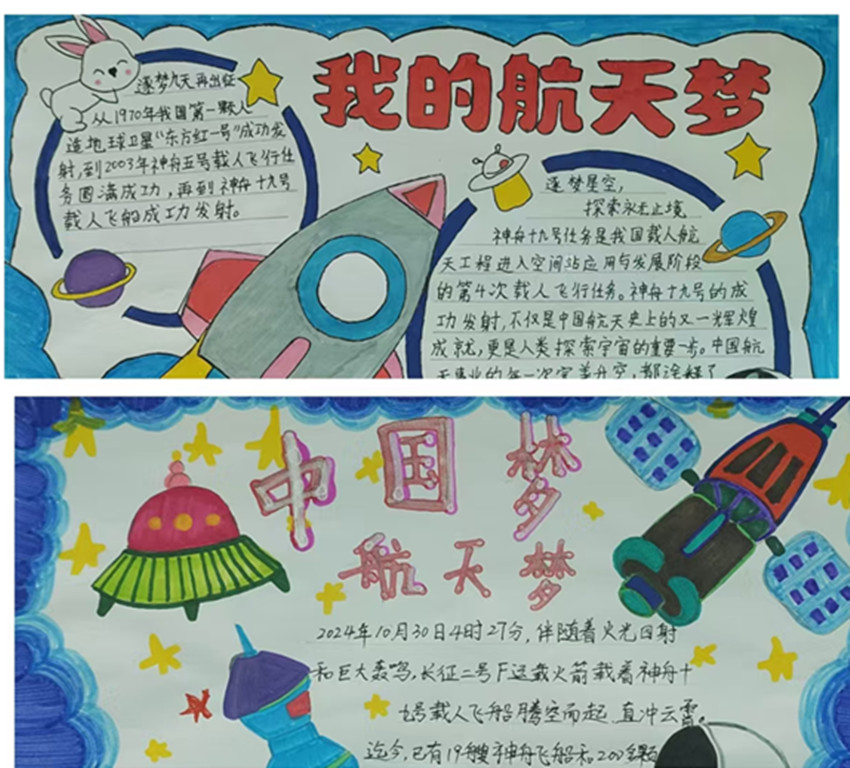 我的航天梦
逐梦九天再出征
从1970年我国第一颗人
造地球卫星“东方红一号”成功发
射,到2003年神舟五号载人飞行任
务圆满成功,再到神舟十九号
载人飞船成功发射。
逐梦星空,
探索永无止境
神舟十九号任务是我国载人航
天工程进入空间站应用与发展阶段
的第4次载人飞行任务。神舟十九号的成
功发射,不仅是中国航天史上的又一辉煌
成就,更是人类探索宇宙的重要一步。中国航
天事业的每一次完美升空,都诠释了
中国梦
航天梦
2024年10月30日4时27分,伴随着火光四射
和巨大轰鸣,长征二号F运载火箭载着神舟十
九号载人飞船腾空而起、直冲云霄。
迄今,已有19艘神舟飞船和200多颗